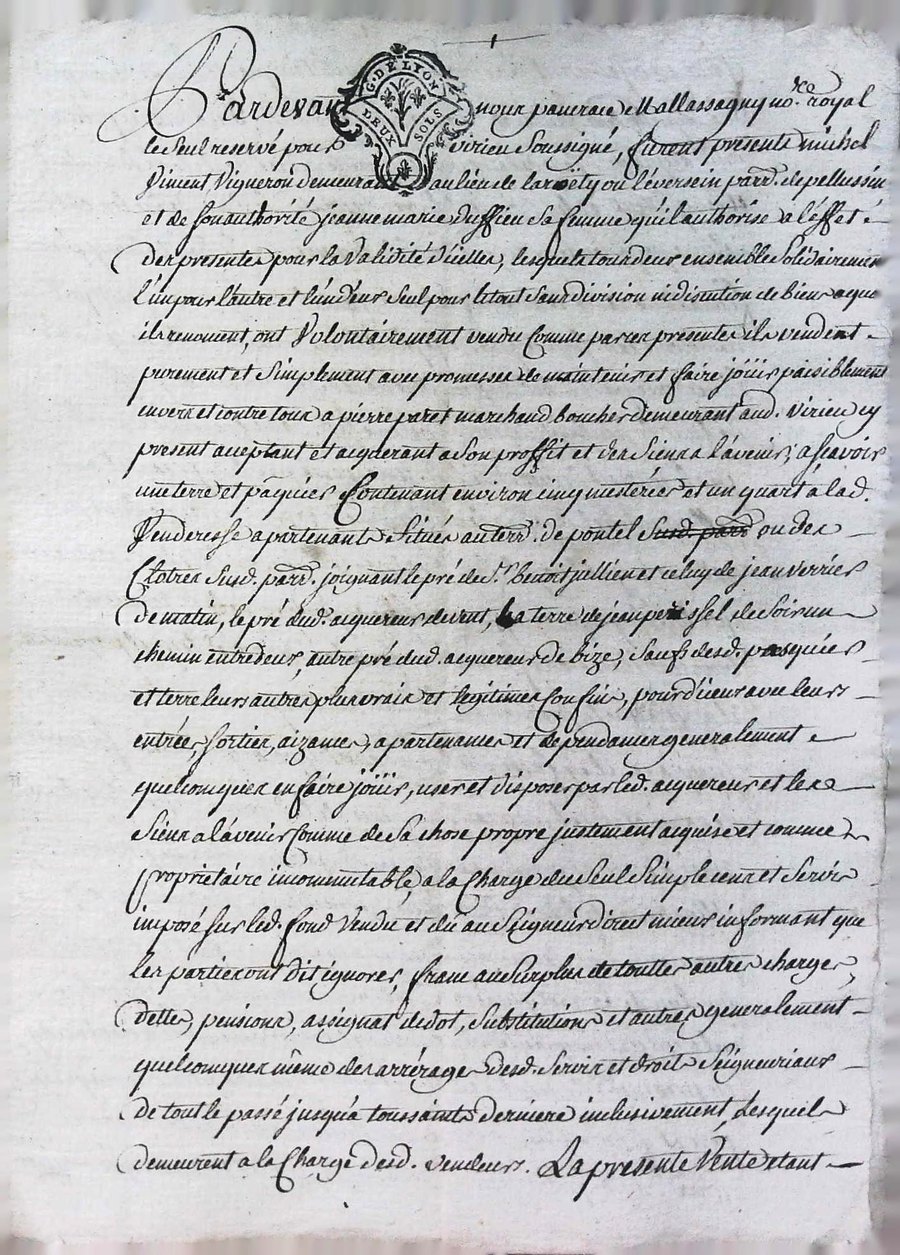 G. DE LYON
DEUX SOLS
Pardevant nous pancrace Mallassagny no.re royal
le Seul reservé pour virieu Soussigné, furent presents michel
Viment Vigneron demeurant au lieu de la ou l'éversein parr. de pellussin
et de son authorité jeanne marie duffieu Sa femme qu'il authorise a l'effet é
des presentes pour la Validité d'icelles, lesquels tous deux ensemble Solidairement
l'un pour l'autre et l'un d'eux Seul pour le tout Sans division ni discution de biens a quoi
ils renoncent, ont Volontairement vendu Comme par ces presentes ils vendent
purement et Simplement avec promesses de maintenir et faire joüir paisiblement
envers et contre tous a pierre paret marchand boucher demeurant aud. virieu cy
present acceptant et acquerant a Son proffit et des Siens a l'avenir, a sçavoir
une terre et pâquiés Contenant environ cinq mesterées et un quart a lad.
Venderesse apartenants Situés au terr. de pontel Susd. parr ou des
Clotres Susd. parr. joignant le pré de S.r benoit jullien et celuy de jean verriés
de matin, le pré dud. acquereur de vent, La terre de jean perissel de Soir un
chemin entre deux, autre pré dud. acquereur de bize, Saufs desd. pasquiés
et terre leurs autres plus vrais et legitimes Confins, pour d'iceux avec leurs
entrées, Sorties, aizances, apartenances et dependances generalement
quelconques en faire joüir, user et disposer par led. acquereur et les
Siens a l'avenir Comme de Sa chose propre justement acquise et comme
propriétaire incommutable, a la Charge du Seul Simple cens et Servis
imposé Sur led. fond Vendu et dû au Seigneur direct mieux informant que
les parties ont dit ignorer, franc au Surplus de touttes autres charges,
dettes, pensions, assignat de dot, Substitutions et autres generalement
quelconques même des arrérages desd. Servis et droits Seigneuriaux
de tout le passé jusqu'a toussaints derniere inclusivement, Lesquels
demeurent a la Charge desd. vendeurs. La presente Vente etant